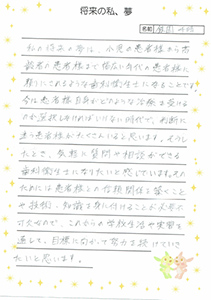 将来の私、夢
名前
私の将来の夢は、小児の患者様から高
齢者の患者様まで幅広い年代の患者様に
頼りにされるような歯科衛生士になることです。
今は患者様自身がどのような治療を受ける
のか選択しなければいけない時代で、判断に
迷う患者様がたくさんいると思います。そうし
たとき、気軽に質問や相談ができる
歯科衛生士になりたいと感じています。その
ためには患者様との信頼関係を築くこと
や技術・知識を身に付けることが必要不
可欠なので、これからの学校生活や実習を
通して、目標に向かって努力を続けていき
たいと思います。